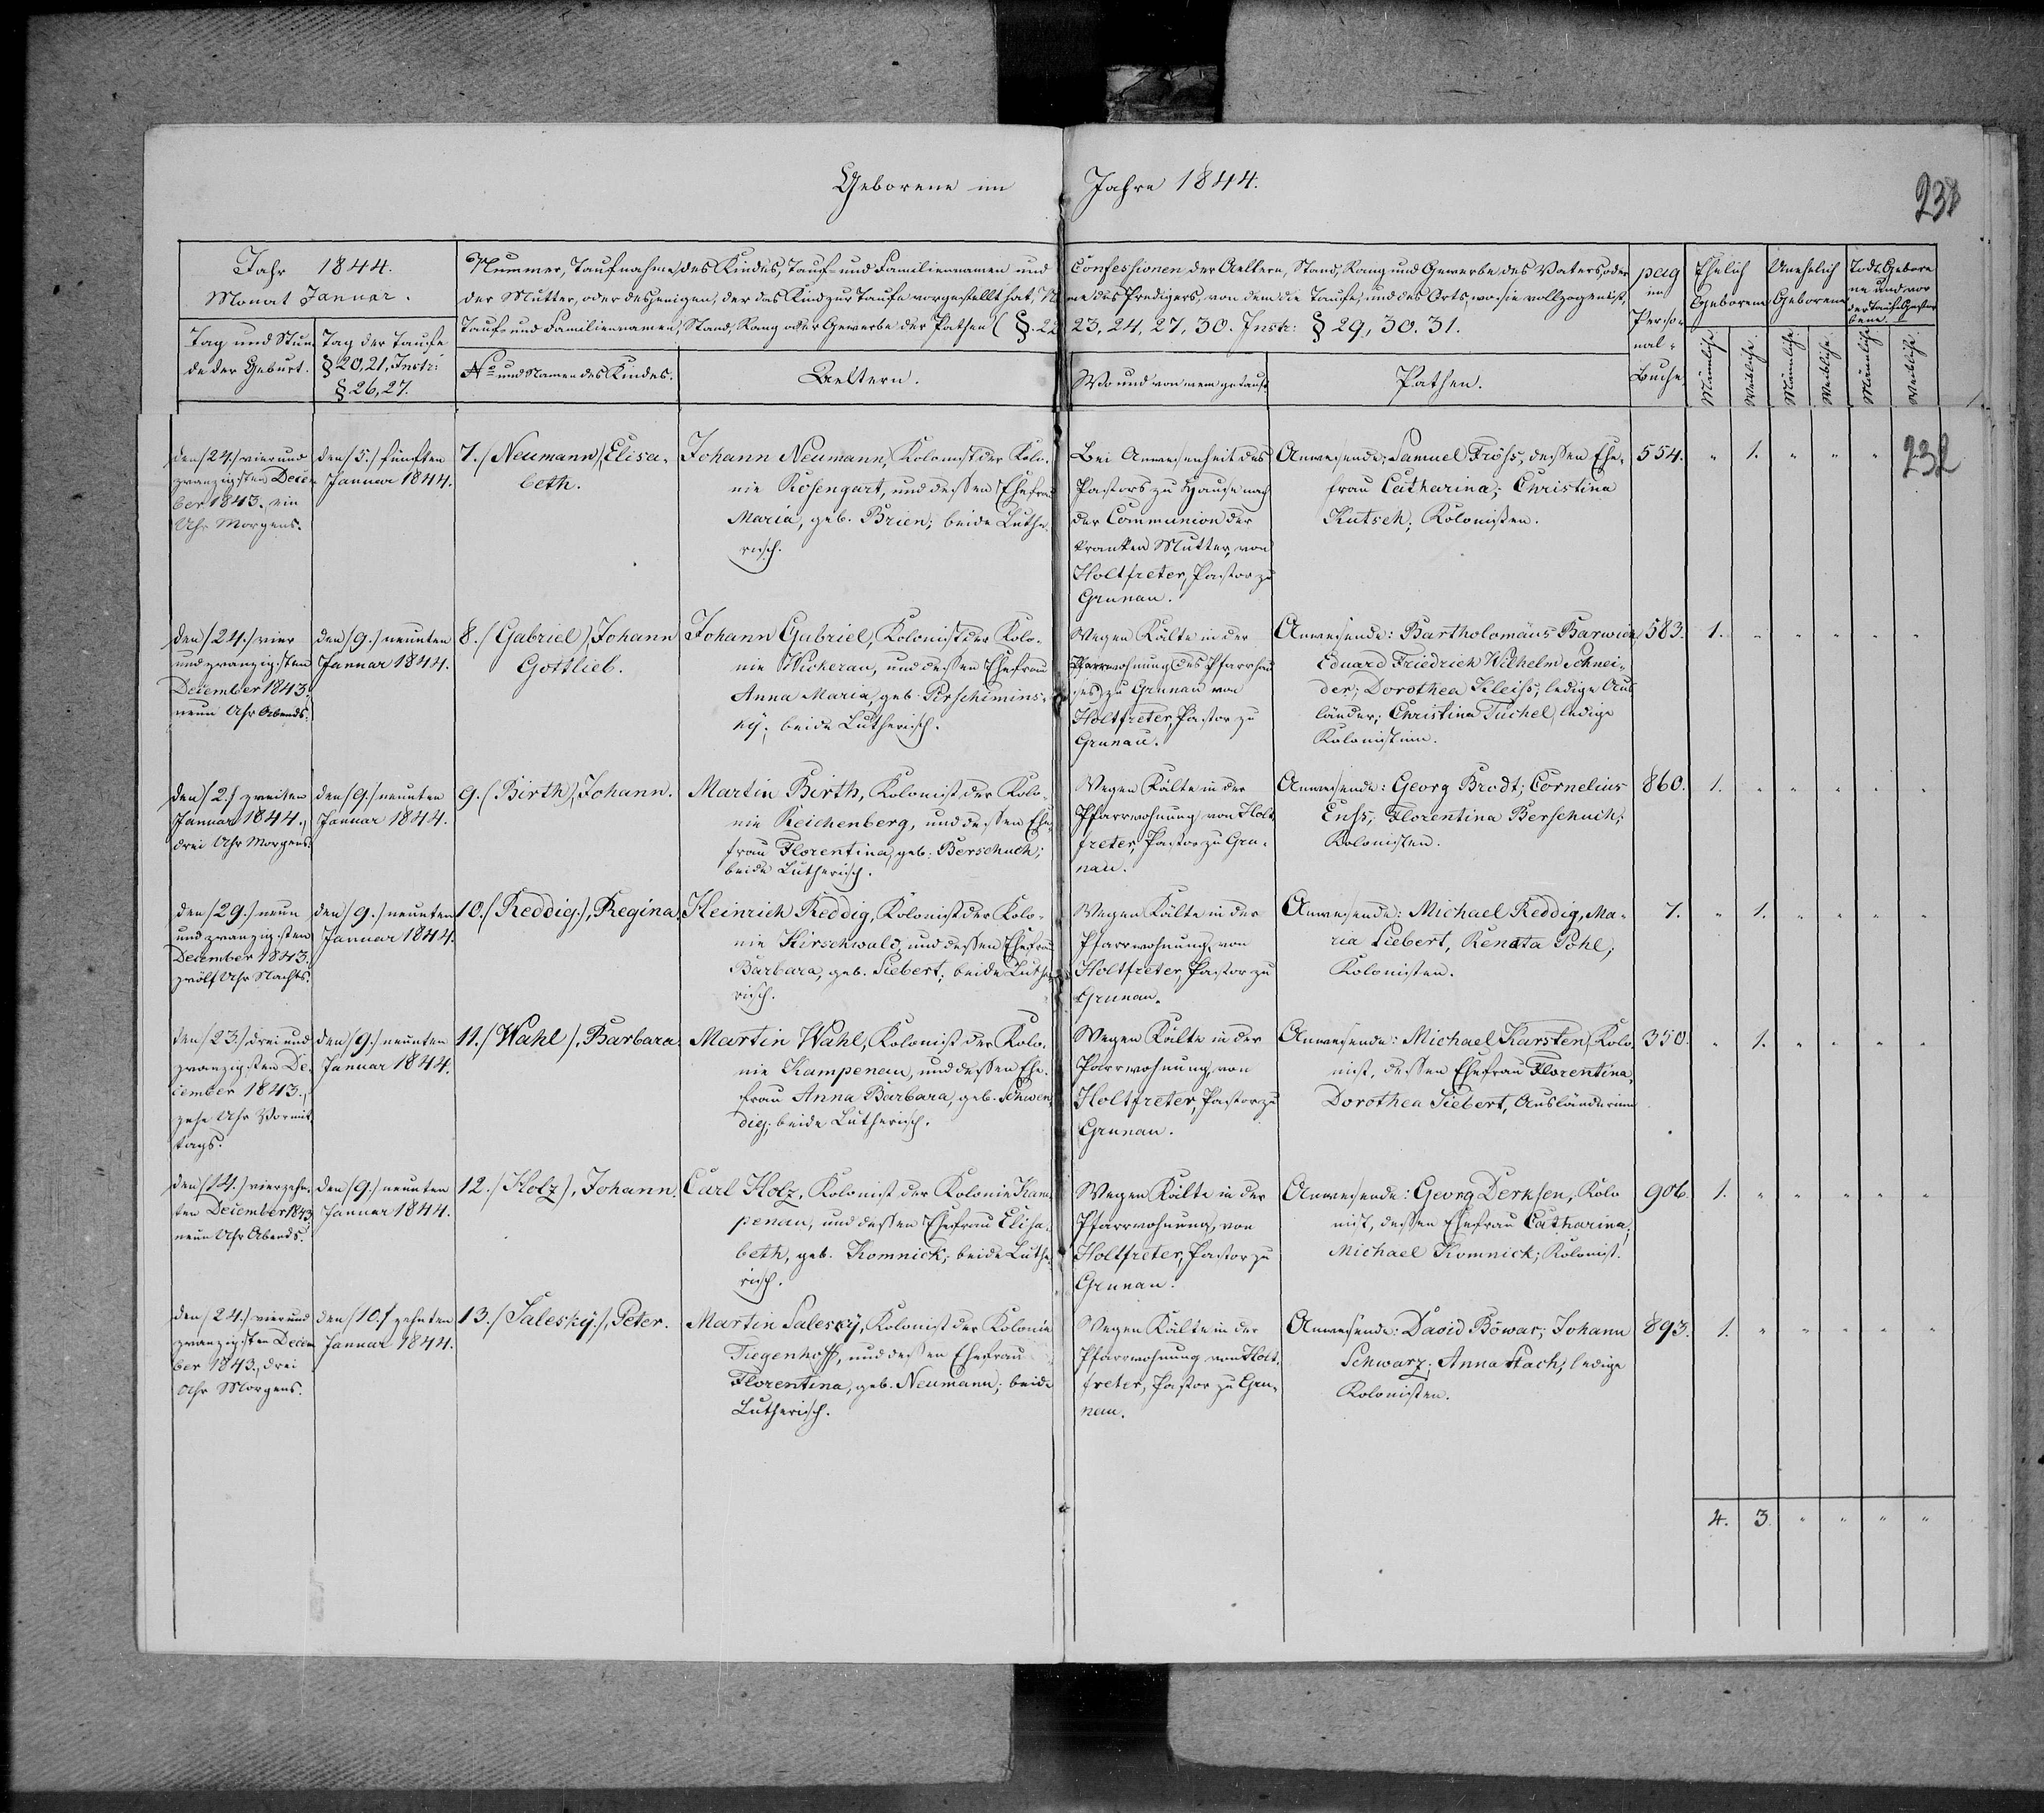 Geborene im Jahre 1844.
238
Jahr 1844.
Monat Januar.
Tag und Stun-
de der Geburt.
Tag der Taufe
§ 20, 21, Instr:
§ 26, 27.
Nummer, Taufnahme des Kindes, Tauf- und Familiennamen und Confessionen der Aeltern, Stand, Rang und Gewerbe des Vaters, oder
der Mutter, oder desjenigen, der das Kind zur Taufe vorgestellt hat, Na me des Predigers, von dem die Taufe, und des Orts, wo sie vollzogen ist,
Tauf und Familiennamen, Stand, Rang oder Gewerbe der Pathen (§. 22 23, 24, 27, 30. Instr: § 29, 30. 31.
No und Namen des Kindes.
Aeltern.
Wo und von wem getauft.
Pathen.
pag
im
Perso-
nal-
Buche
Ehelich
Geborene
Unehelich
Geborene
Todt Gebore
ne und vor
der Taufe Gestor
bene.
Männliche
Weibliche.
Männliche
Weibliche.
Männliche
Weibliche.
den (24.) vierund
zwanzigsten Decem
ber 1843. ein
Uhr Morgens.
den (5.) fünften
Januar 1844.
7. (Neumann), Elisa-
beth.
Johann Neumann, Kolonist der Kolo-
nie Rosengart, und dessen Ehefrau
Maria, geb. Brien; beide Luthe-
risch.
Bei Anwesenheit des
Pastors zu Hause nach
der Communion der
kranken Mutter, von
Holtfreter, Pastor zu
Grunau.
Anwesende: Samuel Fröhs, dessen Ehe-
frau Catharina; Christina
Kutsch; Kolonisten.
554. " 1. " " "
232
den (24.) vier
und zwanzigsten
December 1843.
neun Uhr Abends.
den (9.) neunten
Januar 1844.
8. (Gabriel) Johann
Gottlieb.
Johann Gabriel, Kolonist der Kolo-
nie Wickerau, und dessen Ehefrau
Anna Maria, geb. Perschimins-
ky; beide Lutherisch.
Wegen Kälte in der
Pfarrwohnung des Pfarrhau
ses zu Grunau von
Holtfreter, Pastor zu
Grunau.
Anwesende: Bartholomäus Barwich,
Eduard Friedrich Wilhelm Schnei-
der; Dorothea Kleiss; ledige Aus
länder; Christina Tuchel, ledige
Kolonistinn.
583. 1. " " " " "
den (2.) zweiten
Januar 1844.,
drei Uhr Morgens.
den (9.) neunten
Januar 1844.
9. (Birth), Johann.
Martin Birth, Kolonist der Kolo-
nie Reichenberg, und dessen Ehe-
frau Florentina, geb. Berschuch;
beide Lutherisch.
Wegen Kälte in der
Pfarrwohnung von Holt
freter, Pastor zu Gru-
nau.
Anwesende: Georg Brodt; Cornelius
Enss; Florentina Berschuch;
Kolonisten.
860. 1. " " " " "
den (29.) neun
und zwanzigsten
December 1843.
zwölf Uhr Nachts.
den (9.) neunten
Januar 1844.
10. (Reddig), Regina
Heinrich Reddig, Kolonist der Kolo-
nie Kirschwald, und dessen Ehefrau
Barbara, geb. Siebert; beide Luthe-
risch.
Wegen Kälte in der
Pfarrwohnung, von
Holtfreter, Pastor zu
Grunau.
Anwesende: Michael Reddig, Ma-
ria Siebert, Renata Pohl;
Kolonisten.
7. " 1. " " " "
den (23.) drei und
zwanzigsten De-
cember 1843.,
zehn Uhr Vormit
tags.
den (9.) neunten
Januar 1844.
11. (Wahl), Barbara
Martin Wahl, Kolonist der Kolo-
nie Kampenau, und dessen Ehe-
frau Anna Barbara, geb. Schwen-
dig; beide Lutherisch.
Wegen Kälte in der
Parrwohnung, von
Holtfreter, Pastor zu
Grunau.
Anwesende: Michael Karsten, Kolo-
nist, dessen Ehefrau Florentina,
Dorothea Siebert, Ausländerinn
350. " 1. " " " "
den (14.) vierzehn-
ten December 1843
neun Uhr Abends.
den (9.) neunten
Januar 1844.
12. (Holz), Johann.
Carl Holz, Kolonist der Kolonie Kam-
penau, und dessen Ehefrau Elisa-
beth, geb. Komnick; beide Luthe-
risch.
Wegen Kälte in der
Pfarrwohnung, von
Holtfreter, Pastor zu
Grunau.
Anwesende: Georg Derksen, Kolo
nist, dessen Ehefrau Catharina;
Michael Komnick; Kolonist.
906. 1. " " " " "
den (24.) vierund
zwanzigsten Decem
ber 1843., drei
Uhr Morgens.
den (10.) zehnten
Januar 1844.
13. (Salesky), Peter.
Martin Salesky, Kolonist der Kolonie
Tiegenhoff, und dessen Ehefrau
Florentina, geb. Neumann; beide
Lutherisch.
Wegen Kälte in der
Pfarrwohnung von Holt-
freter, Pastor zu Gru-
nau.
Anwesende: David Böwar; Johann
Schwarz; Anna Stach; ledige
Kolonisten.
893. 1. " " " " "
4. 3. " " " "